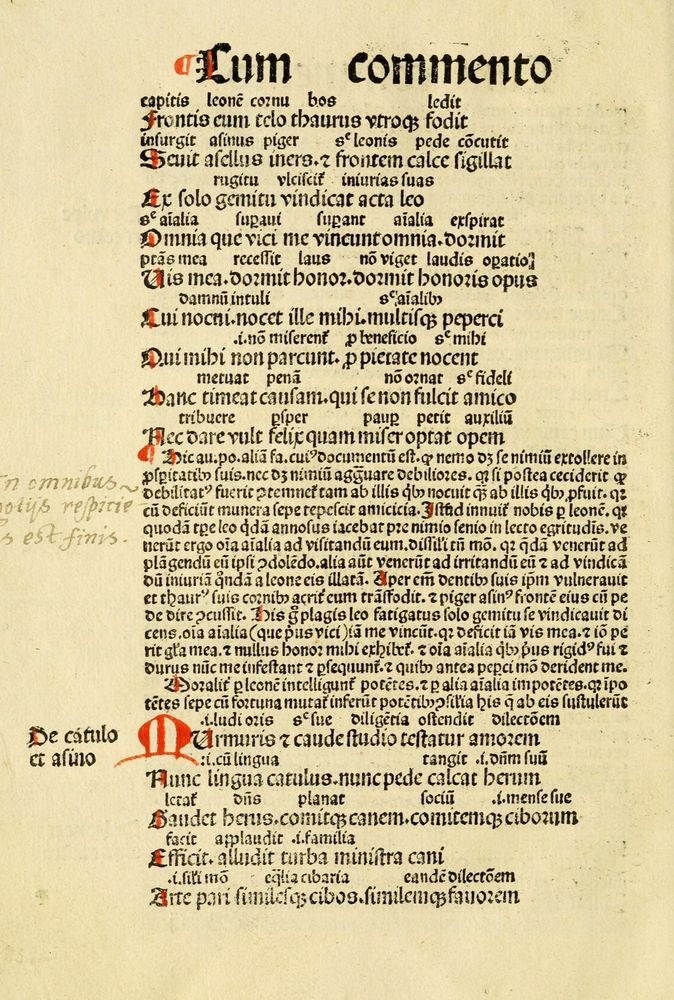 ¶ Cum commento
capitis leonē cornu bos ledit
Frontis eum telo thaurus vtroqꝫ fodit
insurgit asinus piger sꝫ leonis pede cōcutit
Seuit asellus iners. ⁊ frontem calce sigillat
rugitu vlciscit̄ iniurias suas
Ex solo gemitu vindicat acta leo
sꝫ aīalia suꝑaui suꝑant aīalia exspirat
Omnia que vici me vincunt omnia. dormit
ptās mea recessit laus nō viget laudis oꝑatio
Uis mea. dormit honor. dormit honoris opus
damnū intuli sꝫ aīalibꝰ
Cui nocui. nocet ille mihi. multisqꝫ peperci
.i. nō miserent̄ ꝓ beneficio sꝫ mihi
Qui mihi non parcunt. ꝓ pietate nocent
metuat penā nō ornat sꝫ fideli
Hanc timeat causam. qui se non fulcit amico
tribuere ꝓsper pauꝑ petit auxiliū
Nec dare vult felix quam miser optat opem
¶ Hic au. po. aliā fa. cuiꝰ documentū est. ꝙ nemo dꝫ se nimiū extollere in
ꝓsꝑitatibꝰ suis. nec dꝫ nimiū aggͣuare debiliores. qꝛ si postea ceciderit ꝙ
debilitatꝰ fuerit ꝯtemnet̄ tam ab illis qͥbꝰ nocuit qͣꝫ ab illis qͥbꝰ ꝓfuit. qꝛ
cū deficiūt munera sepe tepescit amicicia. Istud innuit̄ nobis ꝑ leonē. qꝛ
quodā tꝑe leo qͥdā annosus iacebat pre nimio senio in lecto egritudīs. ve
nerūt ergo oīa aīalia ad visitandū eum. dissili tn̄ mō. qꝛ qͥdā venerūt ad
plāgendū eū ipsi ꝯdolēdo. alia aūt venerūt ad irritandū eū ⁊ ad vindicā
dū iniuriā qͦndā a leone eis illatā. Aper em̄ dentibꝰ suis ip̄m vulnerauit
et thaurꝰ suis cornibꝰ acrit̄ eum trāsfodit. ⁊ piger asinꝰ frontē eius cū pe
de dire ꝯcussit. His gͦ plagis leo fatigatus solo gemitu se vindicauit di
cens. oīa aīalia (que pͥus vici) iā me vincūt. qꝛ deficit iā vis mea. ⁊ iō pe
rit gl̄a mea. ⁊ nullus honor mihi exhibet̄. ⁊ oīa aīalia qͥbꝰ pͥus rigidꝰ fui ⁊
durus nūc me infestant ⁊ ꝑsequunt̄. ⁊ quibꝰ antea peperci mō derident me.
Moralit̄ ꝑ leonē intelligunt̄ potētes. ⁊ ꝑ alia aīalia impotētes. qꝛ īpo
tētes sepe cū fortuna mutat̄ inferūt potētibꝰ ꝯsilīa his q̄ ab eis sustulerūt
.i. ludi oris sꝫ sue diligētia ostendit dilectōem
De catulo
et asino
MUrmuris ⁊ caude studio testatur amorem
.i. cū lingua tangit .i. dn̄m suū
Nunc lingua catulus. nunc pede calcat herum
letat̄ dn̄s planat sociū .i. mense sue
Gaudet herus. comitqꝫ canem. comitemqꝫ ciborum
facit applaudit .i. familia
Efficit. alludit turba ministra cani
.i. sili mō eq̄lia cibaria eandē dilectōem
Arte pari similesqꝫ cibos. similemqꝫ fauorem
In omnibus
respicie
est finis.